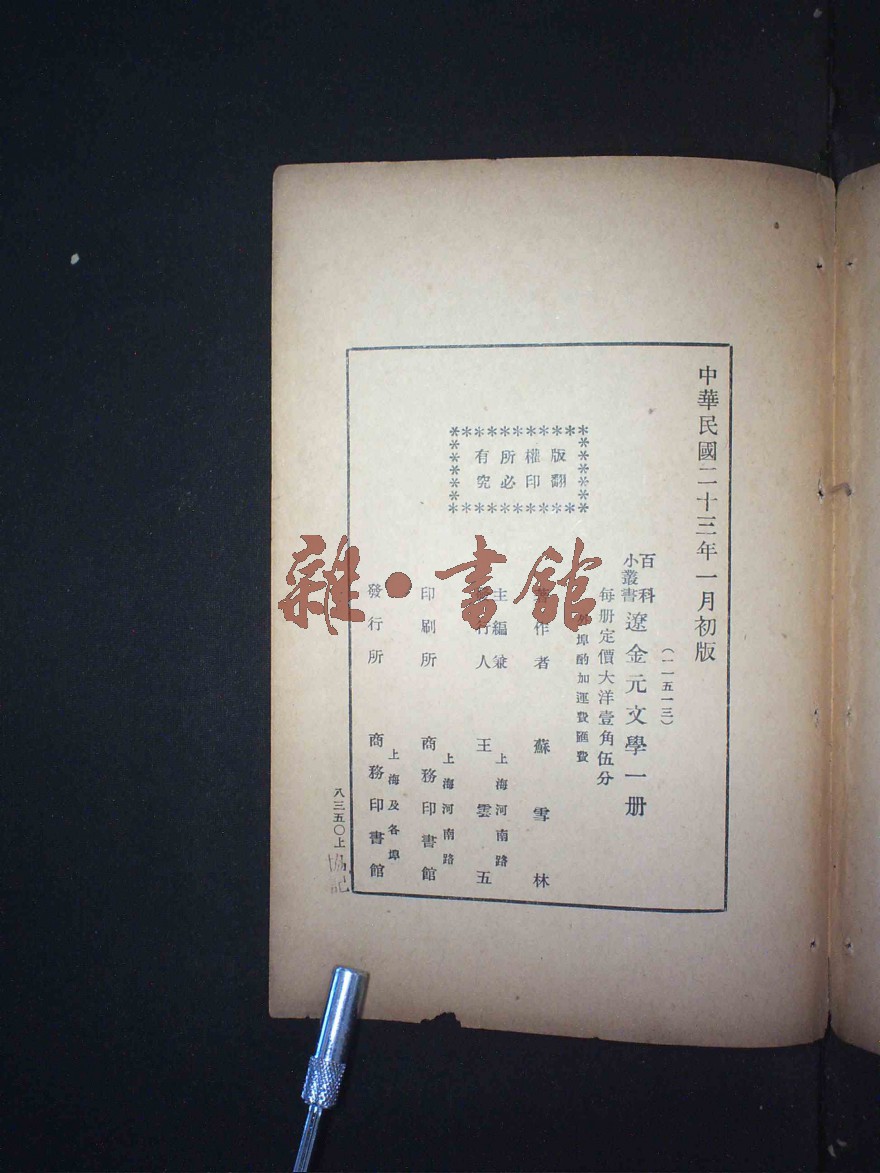 中華民國二十三年一月初版
(一一五一三)
百科
小叢書
遼金元文學一册
每册定價大洋壹角伍分
外埠酌加運費匯費
版權所有
翻印必究
著作者 蘇雪林
主編兼
發行人
上海河南路
王雲五
印刷所
上海河南路
商務印書館
發行所
上海及各埠
商務印書館
八三五〇上
協記
雜·書館